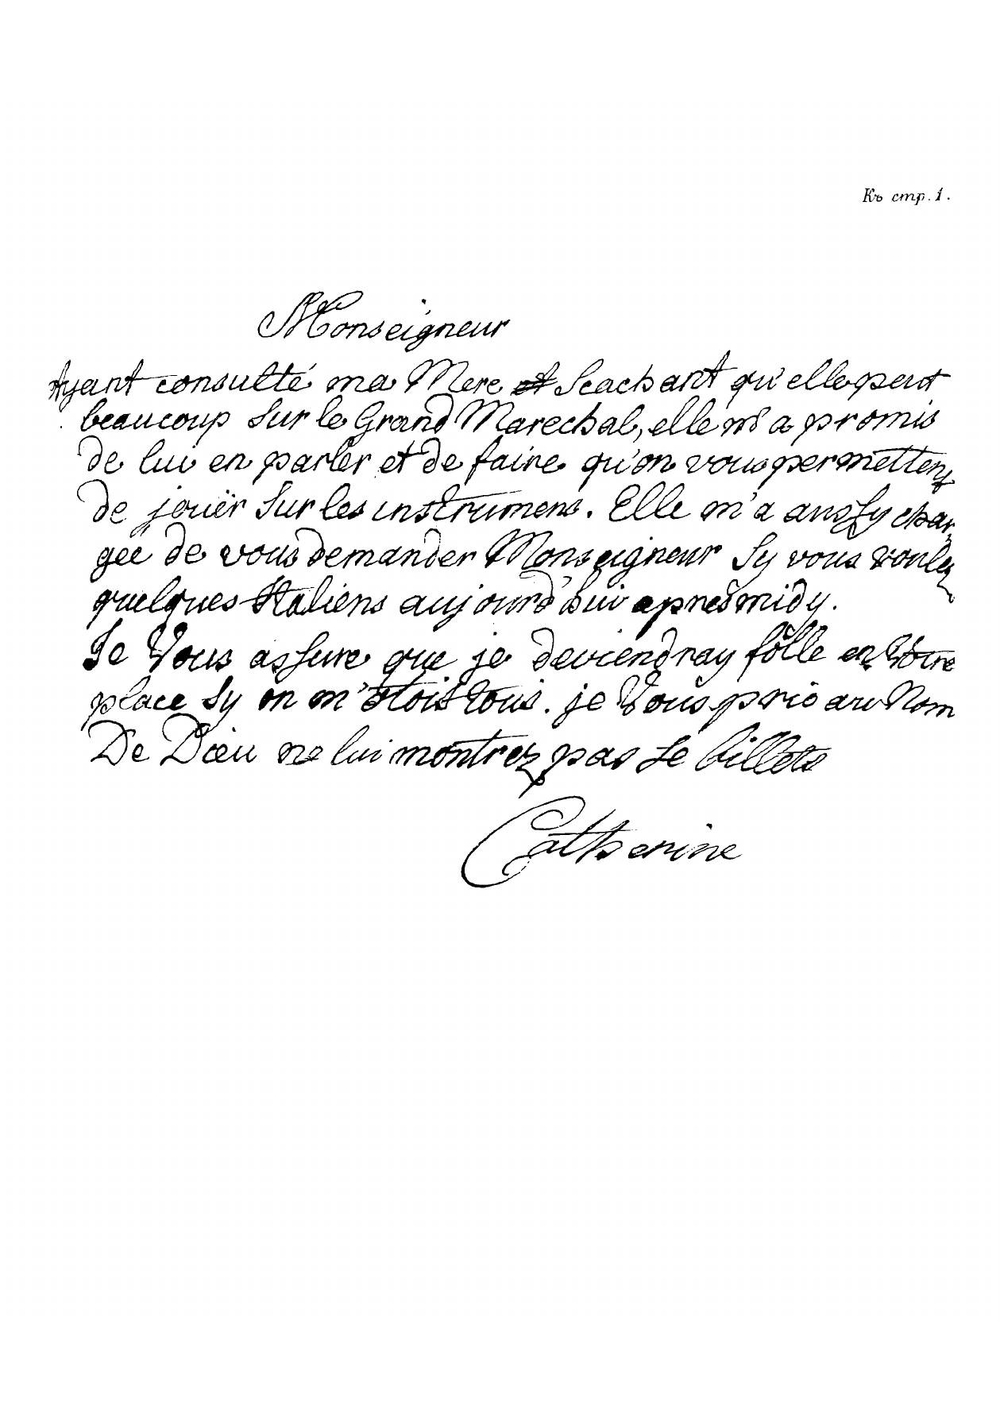 Къ стр. 1.
Monseigneur
Ayant consulté ma Mere et Scachant qu'elle peut
beaucoup sur le Grand Marechal, elle m'a promis
de lui en parler et de faire qu'on vous permettent
de jouër sur les instrumens. Elle m'a aussy char
gee de vous demander Monseigneur sy vous voulez
quelques Italiens aujourd'hui apresmidy.
Je Vous assure que je deviendray folle en Votre
place sy on m'otoit tous. je Vous prie au Nom
De Dieu ne lui montrez pas se billets
Catherine